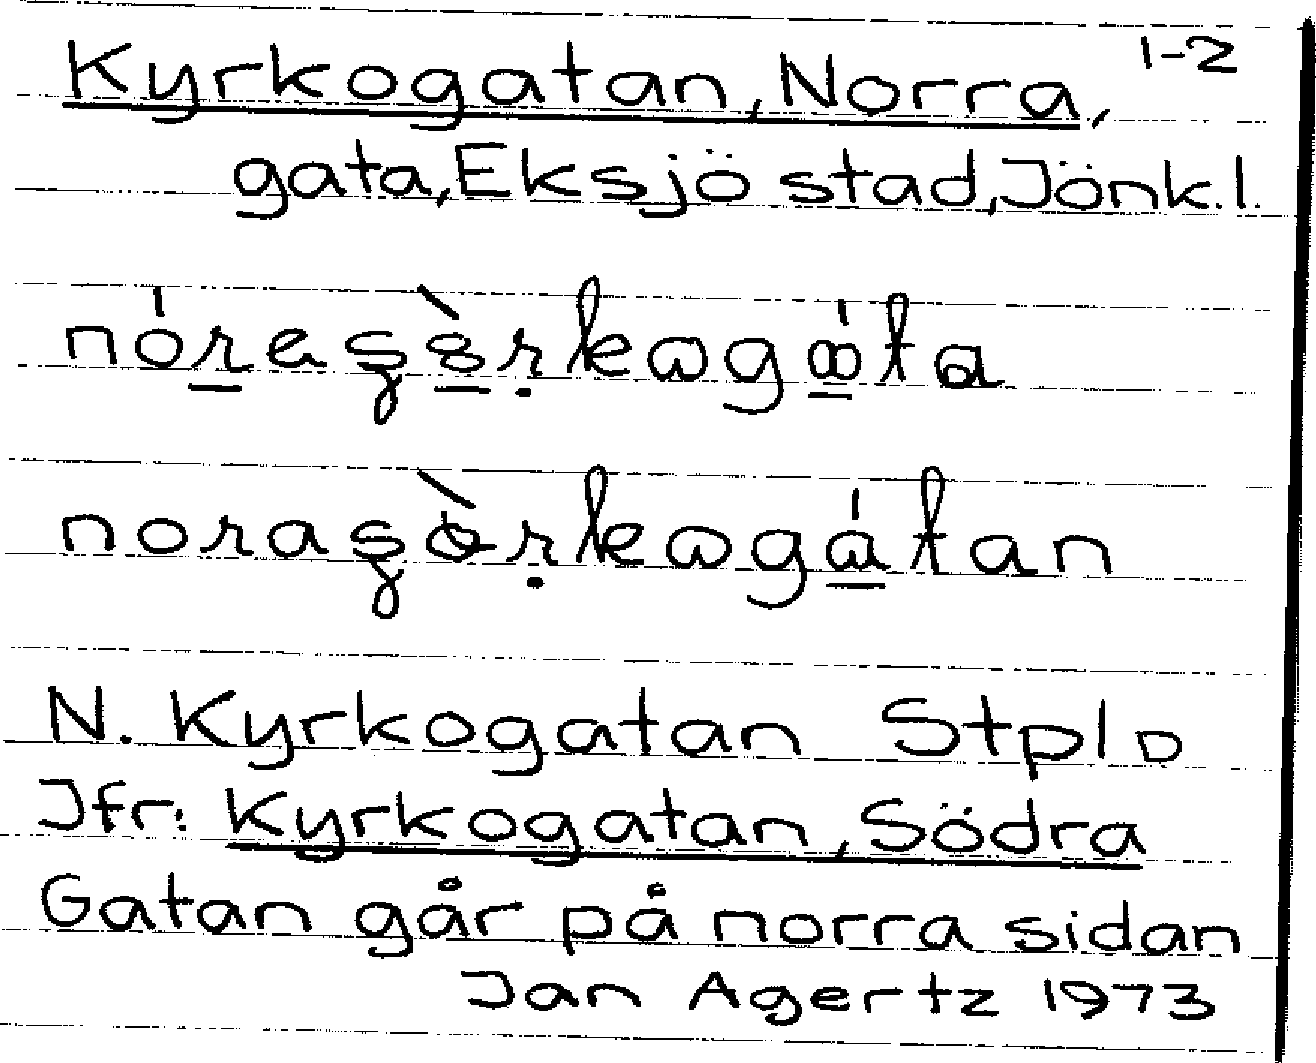 Kyrkogatan, Norra, 1-2
gata, Eksjö stad, Jönk.l.
N. Kyrkogatan Stpl D
Jfr: Kyrkogatan, Södra
Gatan går på norra sidan
Jan Agertz 1973